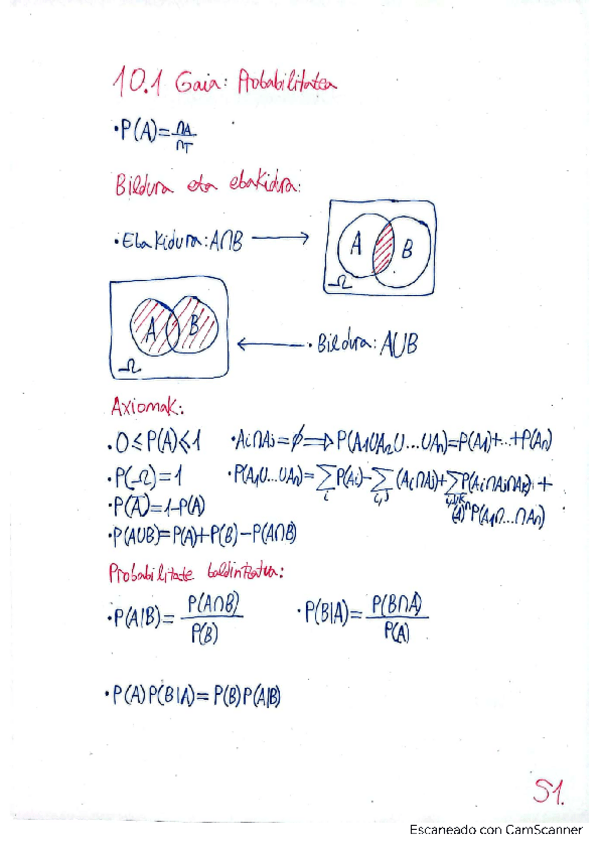 10.1 Gaia: Probabilitatea
•P(A)=nA/nT
Bildura eta ebakidura:
•Ebakidura: A∩B →
A B
Ω
A B
Ω
← •Bildura: A∪B
Axiomak:
•0≤P(A)≤1 •Ai∩Aj=∅⇒P(A1∪A2∪...∪An)=P(A1)+...+P(An)
•P(Ω)=1 •P(A1∪...∪An)=∑i P(Ai)-∑i,j (Ai∩Aj)+∑i,j,k P(Ai∩Aj∩Ak)+
•P(A̅)=1-P(A) P(A1∩...∩An)
•P(A∪B)=P(A)+P(B)-P(A∩B)
Probabilitate baldintzatua:
•P(A|B)=P(A∩B)/P(B) •P(B|A)=P(B∩A)/P(A)
•P(A)P(B|A)=P(B)P(A|B)
51.
Escaneado con CamScanner